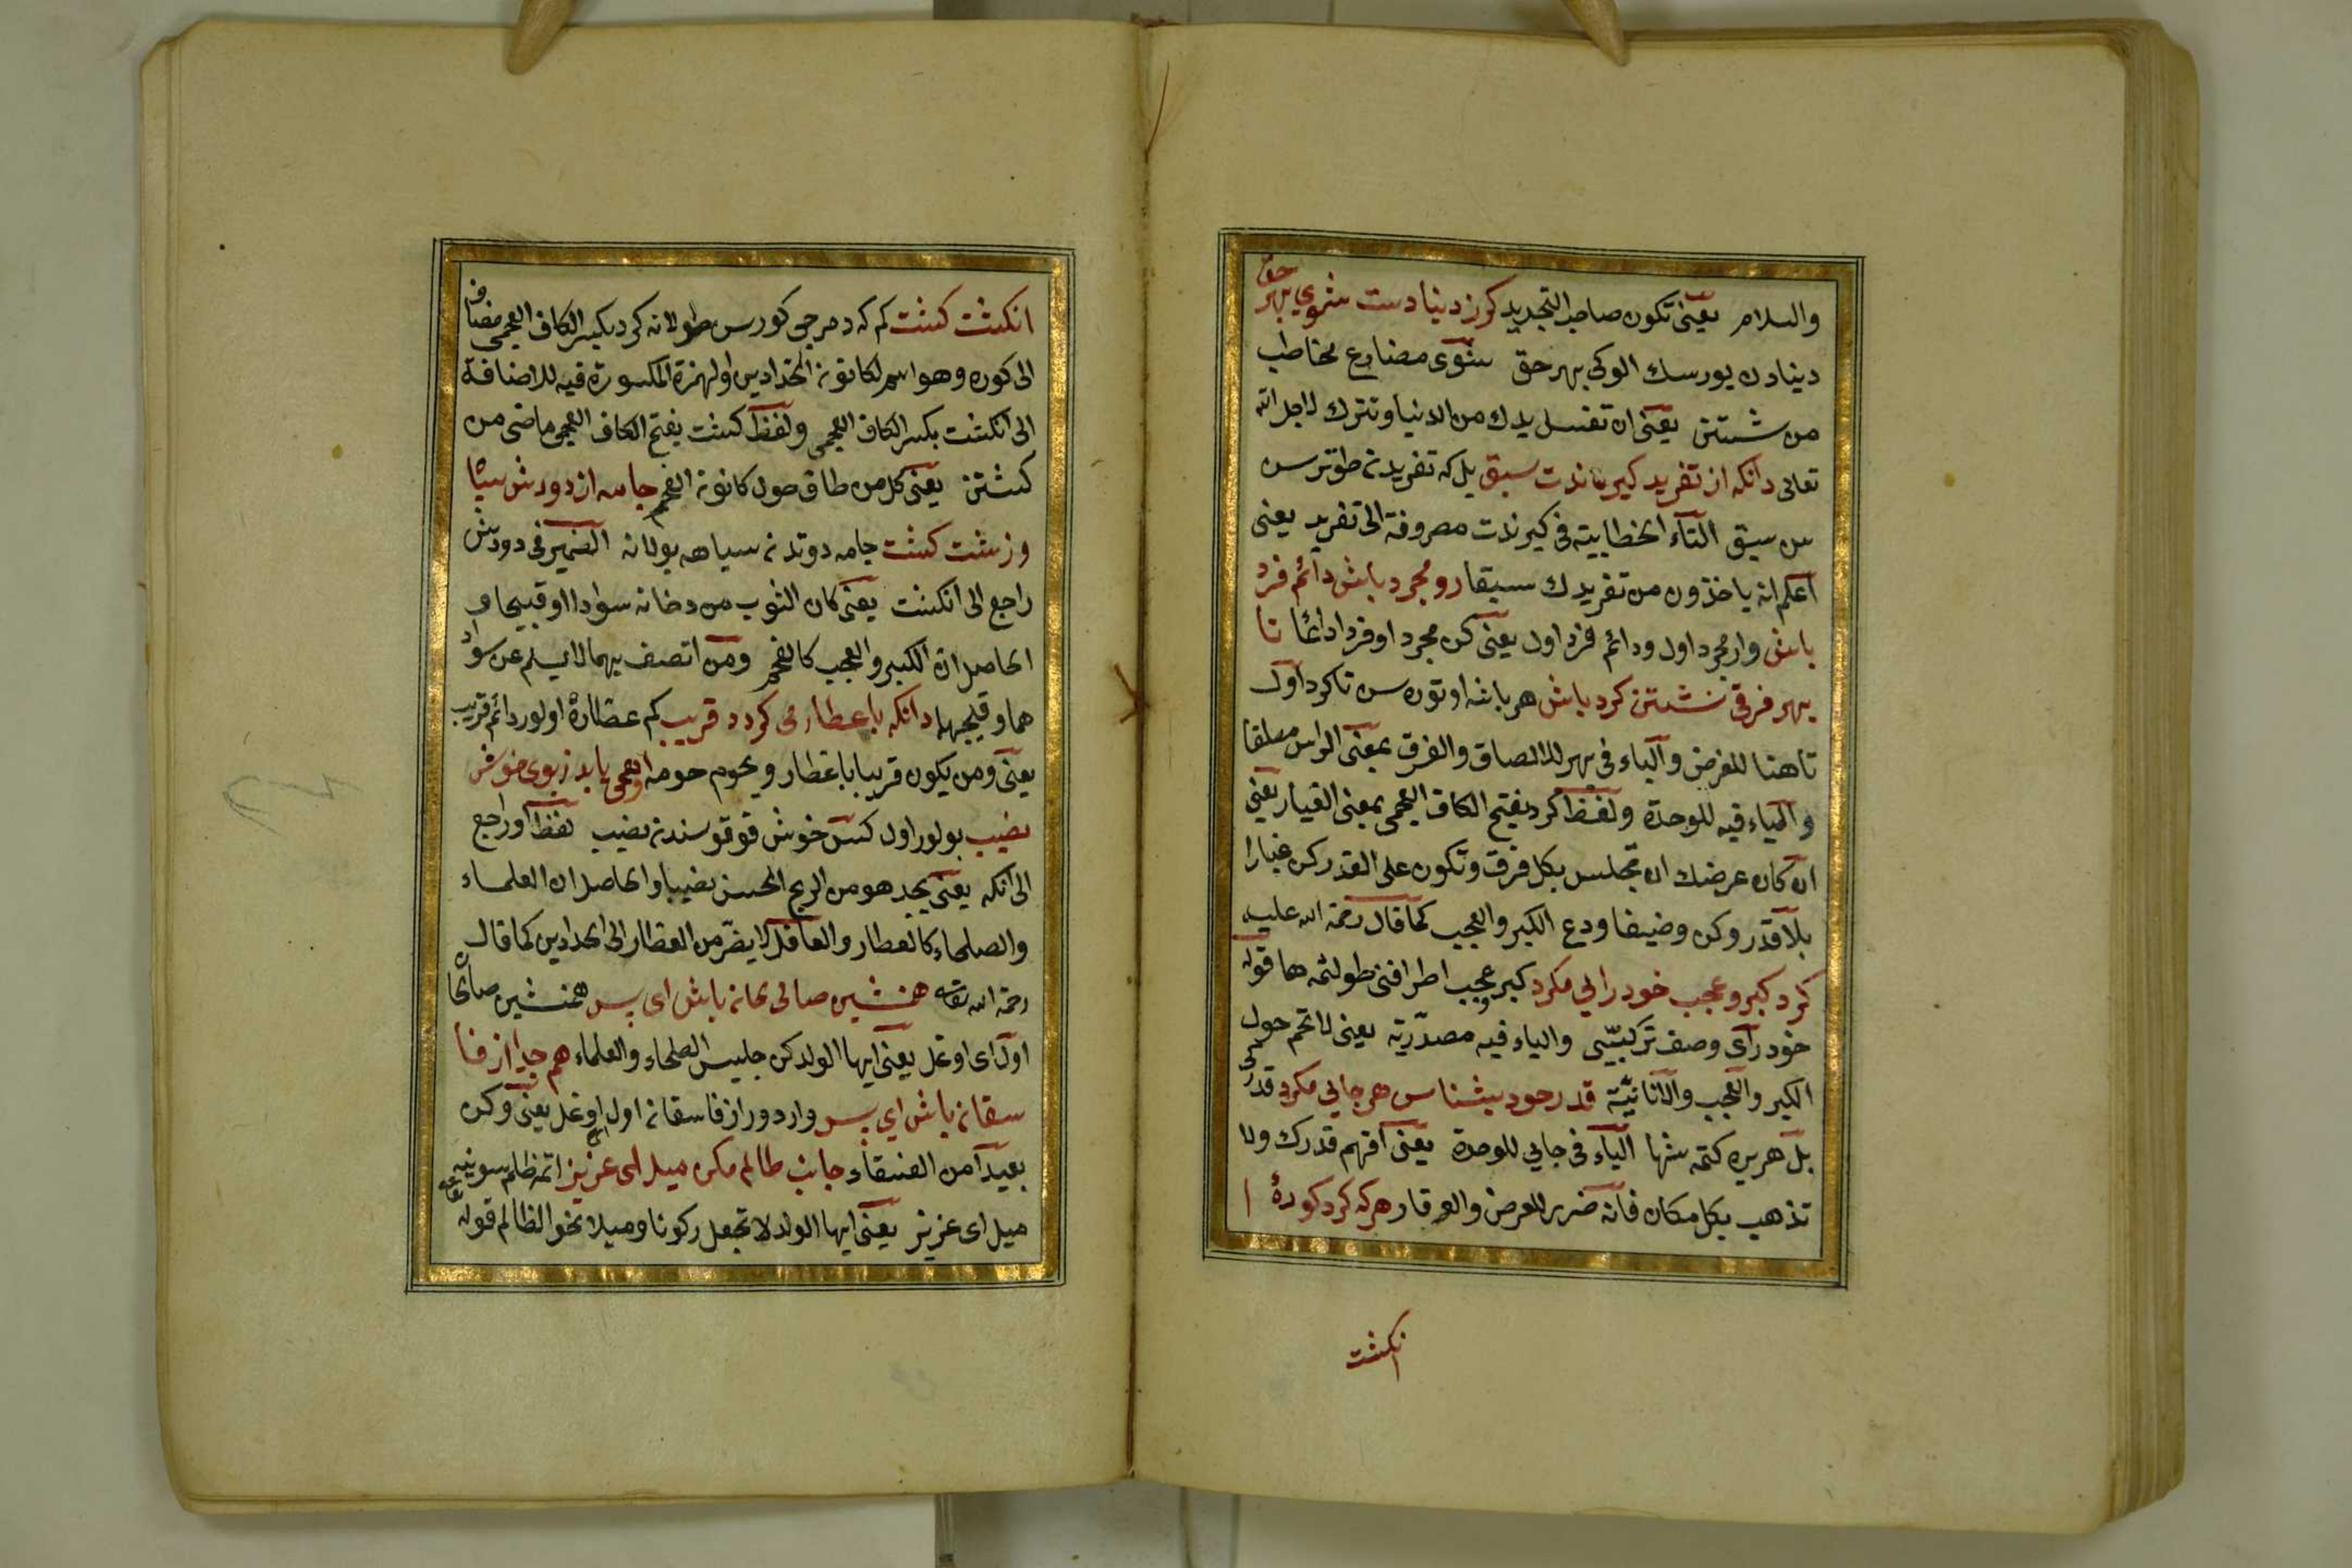 والسلام يعنى تكون صاحب التجريد كرز دنيا دست شموي بهر حق
دينادن يورسك الوكى بهر حق شوى مضارع مخاطب
من شستن يعنى ان تغسل يدك من الدنيا وتترك لاجل الله
تعالى دانكه از تفريد كيرندت سبق بل كه تفريدنه طوترس
سن سبق التاء الخطابية فى كيرندت مصروفة الى تفريد يعنى
اعلم انه ياخذون من تفريدك سبقا رو مجرد باش دائم فرد
باش وار مجرد اول ودائم فرد اول يعنى كن مجردا وفردا دائما تا
بهر فرقى نشستن كرد باش هر باشه اوتورسن تا كرد اول
تا هنا للغرض والباء فى بهر للالصاق والفرق بمعنى الراس مطلقا
والياء فيه للوحدة ولفظ كرد بفتح الكاف العجمى بمعنى الغبار يعنى
ان كان عرضك ان تجلس بكل فرق وتكون على القدر كن غبارا
بلا قدر وكن وضيعا ودع الكبر والعجب كما قال رحمة الله عليه
كرد كبر وعجب خودرايي مكرد كبر وعجب اطرافنى طولنمه هما قوله
خودرآى وصف تركيبيى والياء فيه مصدرية يعنى لا تحم حول
الكبر والعجب والانانيّة قدر خود بشناس هر جايي مكرد قدرڭى
بل هر يره كتمه شها الياء فى جايي للوحدة يعنى افهم قدرك ولا
تذهب بكل مكان فانه ضرر للعرض والوقار هر كه كرد كورهٔ ا
انكشت
انكشت كشت كم كه دمرجى كورسن طولانه كرد بكسر الكاف العجمى مضاف
الى كوره وهو اسم لكانون الحدادين والهمزة المكسورة فيه للاضافة
الى انكشت بكسر الكاف العجمى ولفظ كشت بفتح الكاف العجمى ماضى من
كشتن يعنى كل من طاف حول كانون الفحم جامه از دودش سيا
وزشت كشت جامه دوتندن سياه بولانه الضمير فى دودش
راجع الى انكشت يعنى كان الثوب من دخانه سوادا او قبيحا و
الحاصل ان الكبر والعجب كالفحم ومن اتصف بهما لا يسلم عن سواد
هما وقبيحهما دانكه با عطار مى كردد قريب كم عطاره اولور دائم قريب
يعنى ومن يكون قريبا با عطار ويحوم حومه اوهمى يابد زبوى خوش
نصيب بولور اول كسى خوش قوقوسندن نصيب لفظ او راجع
الى آنكه يعنى يجد هو من الريح الحسن نصيبا والحاصل ان العلماء
والصلحاء كالعطار والعاقل لا يضر من العطار الى الحدادين كما قال
رحمة الله تعالى همنشين صالحانه باش اى پسر همنشين صالحا
اول اى اوغل يعنى ايها الولد كن جليس الصلحاء والعلماء هم جدا از فا
سقانه باش اي پسر وار دور از فاسقانه اول اى اوغل يعنى وكن
بعيدا من الفسقاء جانب ظالم مكن ميل اى عزيز اتمه ظلم سوينه
ميل اى عزيز يعنى ايها الولد لا تجعل ركونا وميلا نحو الظالم قوله